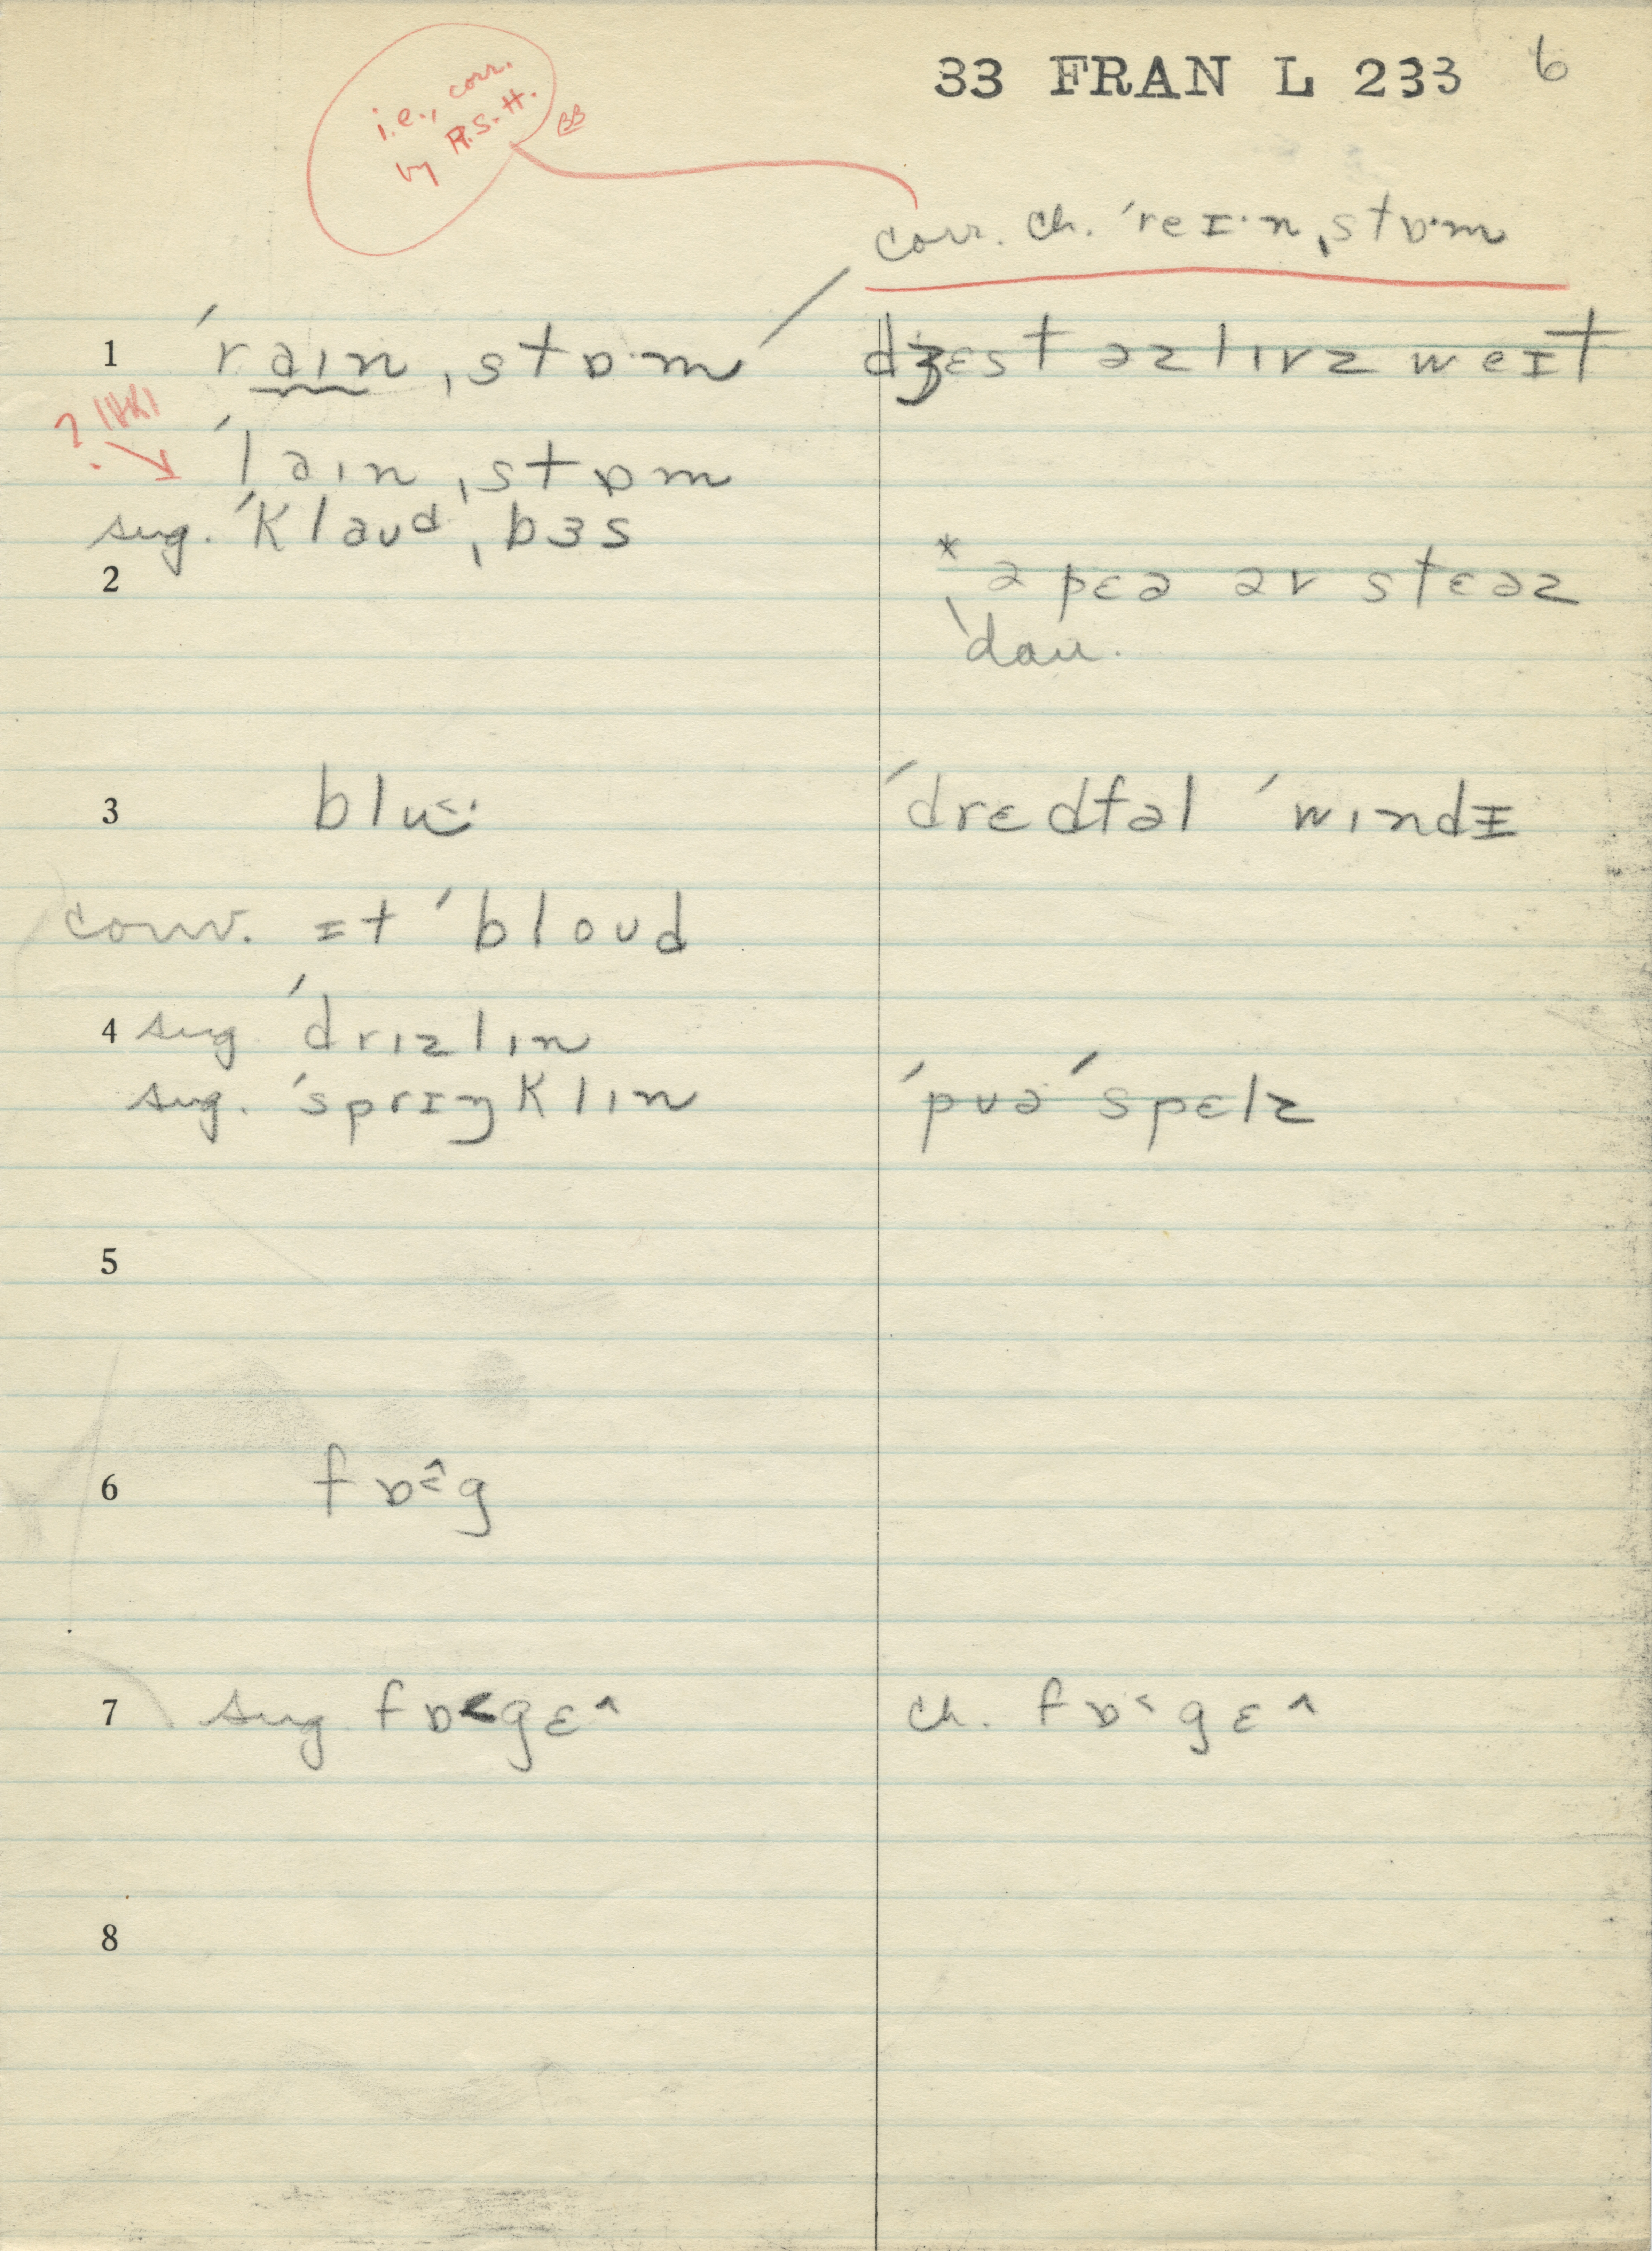 33 FRAN L 233 6
i.e., corr.
by R.S.H.
BB
corr. ch. ˈreɪ·n ˌstɒ·m
1 ˈraɪn ˌstɒ·m dʒɛst əz lɪvz weɪt
?
ˈlaɪn ˌstɒm
sug. ˈklaʊd ˌbɜs
2 * ə pɛə əv stɛəz
ˈdaʊ.
3 blu˂· ˈdrɛdfəl ˈwɪndɪ
conv. ɪt ˈbloʊd
4 sug. ˈdrɪzlɪn
sug. ˈsprɪŋklɪn ˈpʊə ˈspɛlz
5
6 fɒ˂^g
7 sug. fɒ˂gɛ^ ch. fɒ˂gɛ^
8